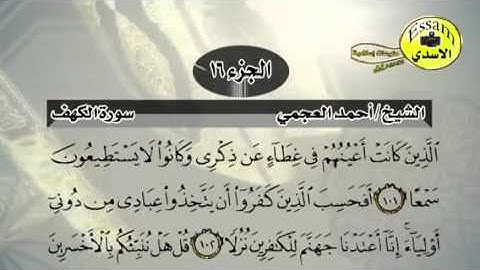 Essam
الاسدي
الجزء ١٦
الشيخ / أحمد العجمي
سورة الكهف
الَّذِينَ كَانَتْ أَعْيُنُهُمْ فِي غِطَاءٍ عَن ذِكْرِى وَكَانُوا لَا يَسْتَطِيعُونَ
سَمْعًا ١٠١ أَفَحَسِبَ الَّذِينَ كَفَرُوا أَن يَتَّخِذُوا عِبَادِى مِن دُونِىٓ
أَوْلِيَاءَ إِنَّا أَعْتَدْنَا جَهَنَّمَ لِلْكَٰفِرِينَ نُزُلًا ١٠٢ قُلْ هَلْ نُنَبِّئُكُم بِالْأَخْسَرِينَ